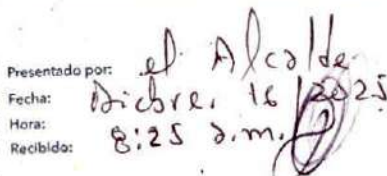 Presentado por: el Alcalde
Fecha: Dicbre. 16/2025
Hora: 8:25 a.m.
Recibido: